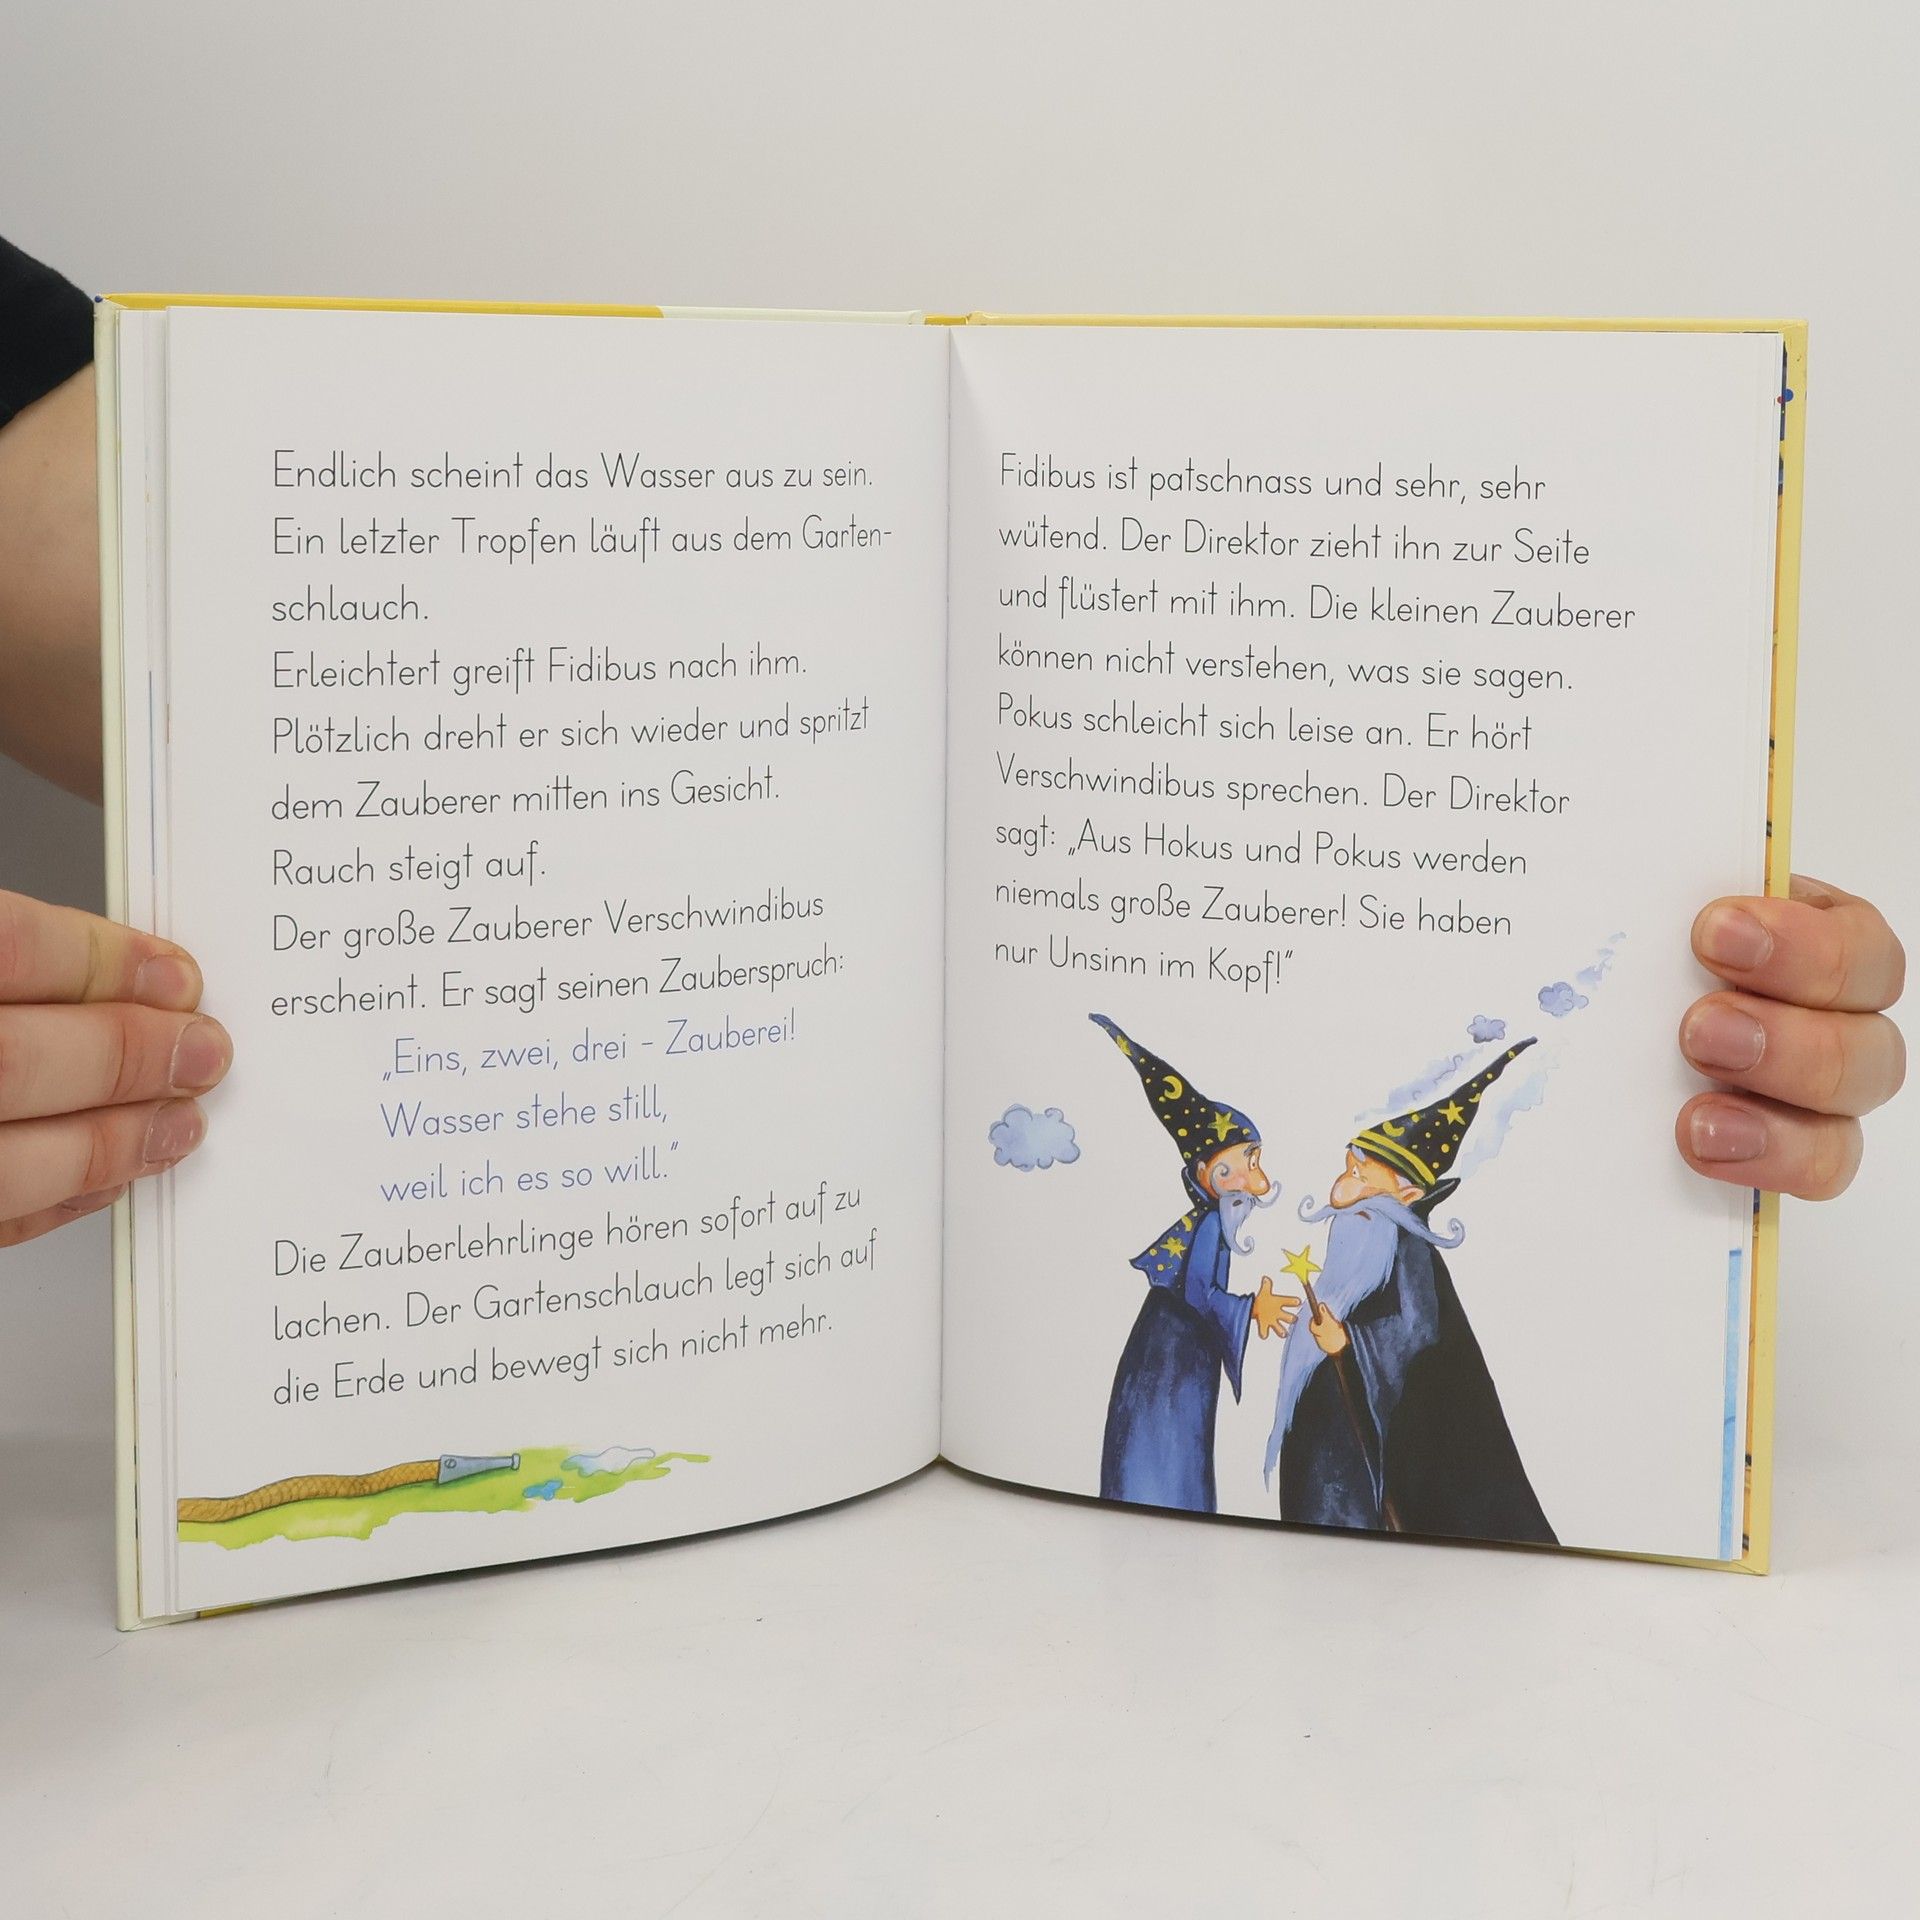 Endlich scheint das Wasser aus zu sein.
Ein letzter Tropfen läuft aus dem Garten-
schlauch.
Erleichtert greift Fidibus nach ihm.
Plötzlich dreht er sich wieder und spritzt
dem Zauberer mitten ins Gesicht.
Rauch steigt auf.
Der große Zauberer Verschwindibus
erscheint. Er sagt seinen Zauberspruch:
„Eins, zwei, drei – Zauberei!
Wasser stehe still,
weil ich es so will.“
Die Zauberlehrlinge hören sofort auf zu
lachen. Der Gartenschlauch legt sich auf
die Erde und bewegt sich nicht mehr.
Fidibus ist patschnass und sehr, sehr
wütend. Der Direktor zieht ihn zur Seite
und flüstert mit ihm. Die kleinen Zauberer
können nicht verstehen, was sie sagen.
Pokus schleicht sich leise an. Er hört
Verschwindibus sprechen. Der Direktor
sagt: „Aus Hokus und Pokus werden
niemals große Zauberer! Sie haben
nur Unsinn im Kopf!“